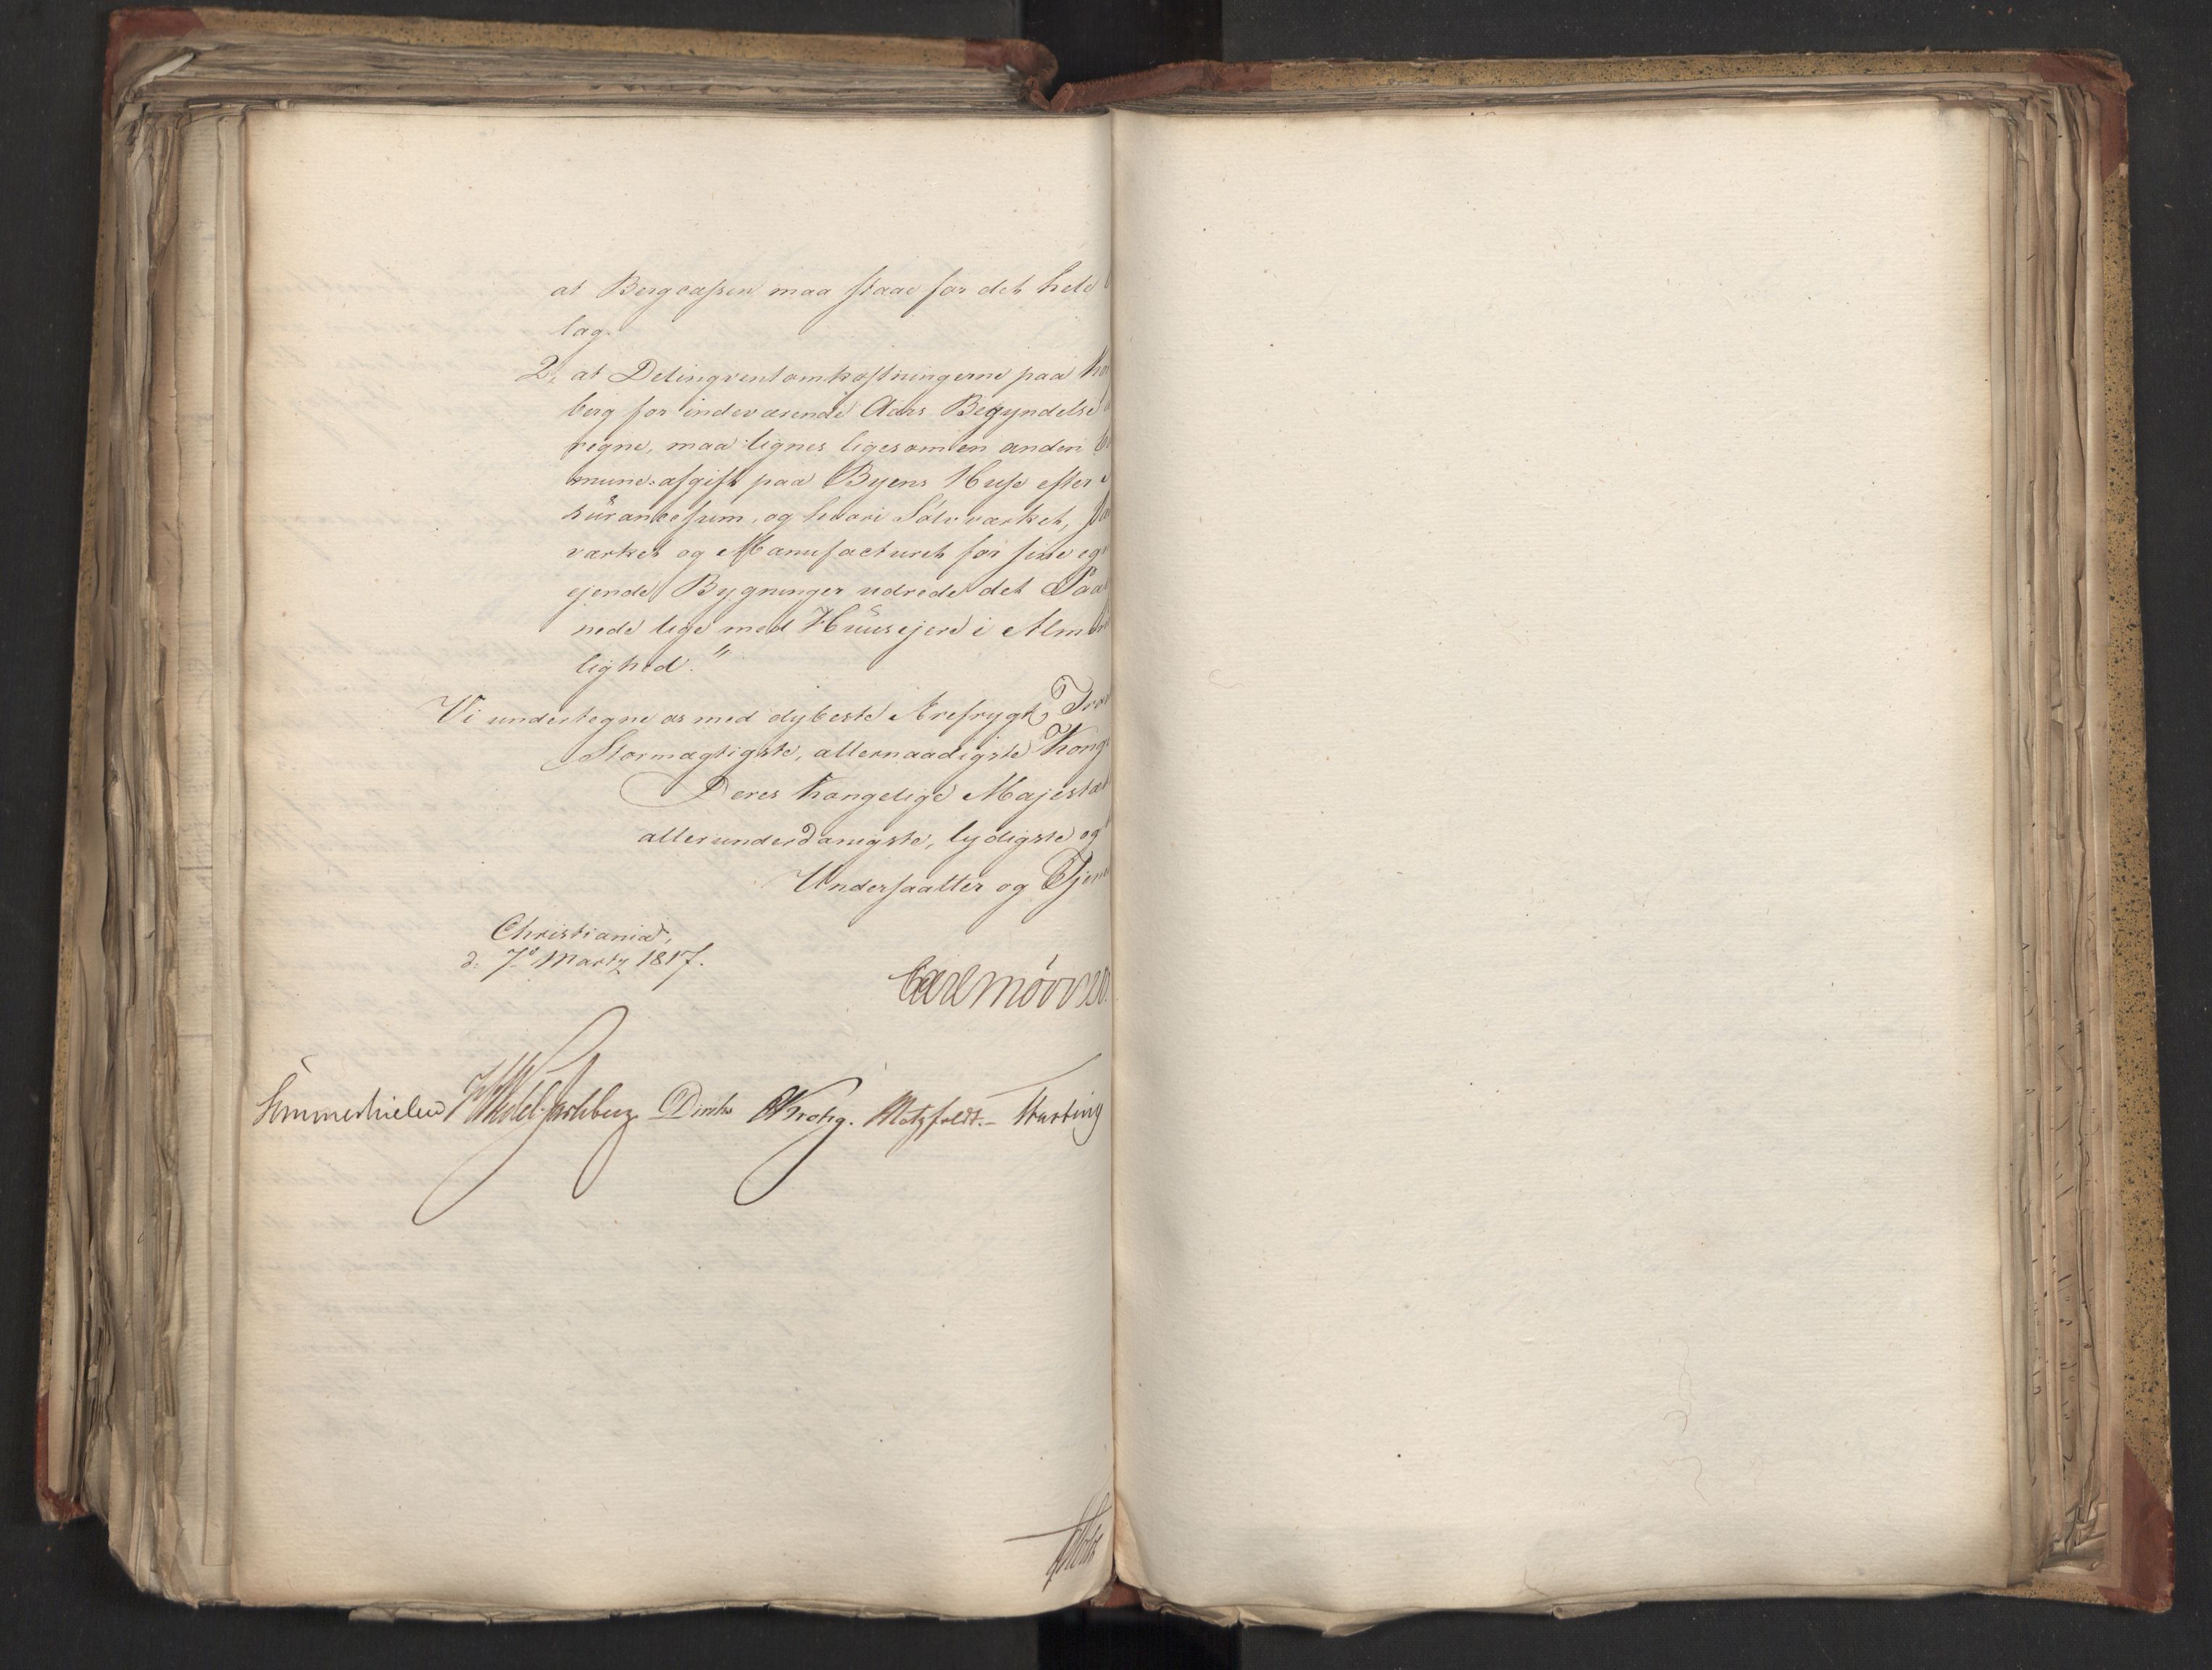 at Bergcassen maa staae for det hele
lag.
2, at Delinqventomkostningerne paa Ko
berg for indeværende Aars Begyndelse
regne, maa lignes ligesom en anden C
mune-afgift paa Byens Huse efter
surancesum, og hvori Sølvværket,
værket og Manufacturet for sine eg
ejende Bygninger udrede det Paa
nede lige med Huusejere i Almi
lighed."
Vi undertegne os med dybeste Ærefrygt,
Stormægtigste, allernaadigste Kong
Deres Kongelige Majestæt
allerunderdanigste, lydigste og
Undersaatter og Tjen
Christiania,
d. 7de Martz 1817.
Carl Mörner.
Sommerhielm Wedel-Jarlsberg Diriks Krohg. Motzfeldt.- Hartvig